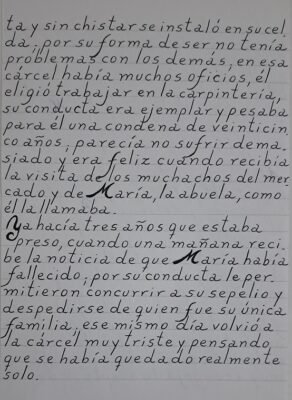 ta y sin chistar se instaló en su cel
da; por su forma de ser no tenía
problemas con los demás, en esa
cárcel había muchos oficios, él
eligió trabajar en la carpintería,
su conducta era ejemplar y pesaba
para él una condena de veinticin
co años; parecía no sufrir dema_
siado y era feliz cuando recibia
la visita de los muchachos del mer_
cado y de María, la abuela, como
él la llamaba.
Ya hacía tres años que estaba
preso, cuando una mañana reci_
be la noticia de que María había
fallecido; por su conducta le per_
mitieron concurrir a su sepelio y
despedirse de quien fue su única
familia, ese mismo día volvió a
la cárcel muy triste y pensando
que se había quedado realmente
solo.